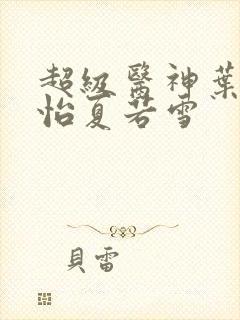 超級醫神葉
怡夏若雪
貝雷